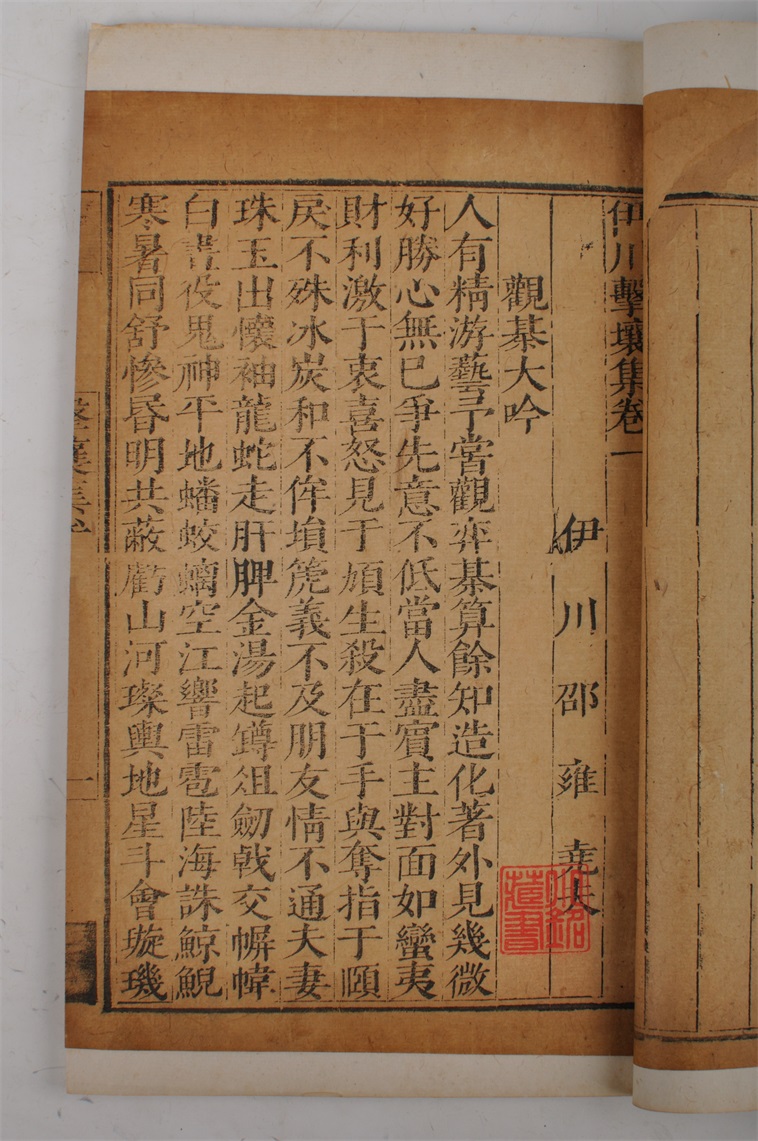 伊川擊壤集卷一
伊川邵雍堯夫
觀棊大吟
人有精游藝予嘗觀弈棊算餘知造化著外見幾微
好勝心無已爭先意不低當人盡賓主對面如蠻夷
財利激于衷喜怒見于頄生殺在于手與奪指于頤
戾不殊冰炭和不侔塤篪義不及朋友情不通夫妻
珠玉出懷袖龍蛇走肝脾金湯起罇俎劒戟交幈幃
白晝役鬼神平地蟠蛟螭空江響雷雹陸海誅鯨鯢
寒暑同舒慘昏明共蔽虧山河璨輿地星斗會璇璣
擊壤集卷
一
藏書